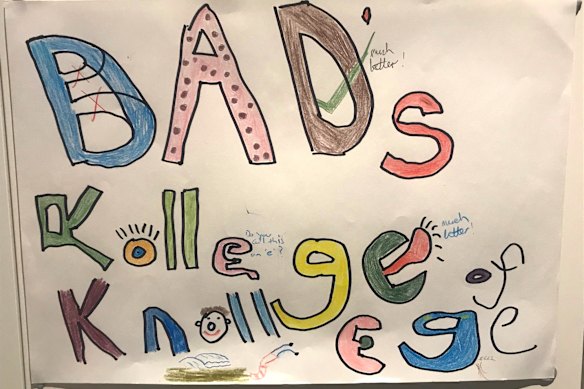 DAD's
much better!
Kollege of
Do you call this an 'e'?
much better!
Knollege